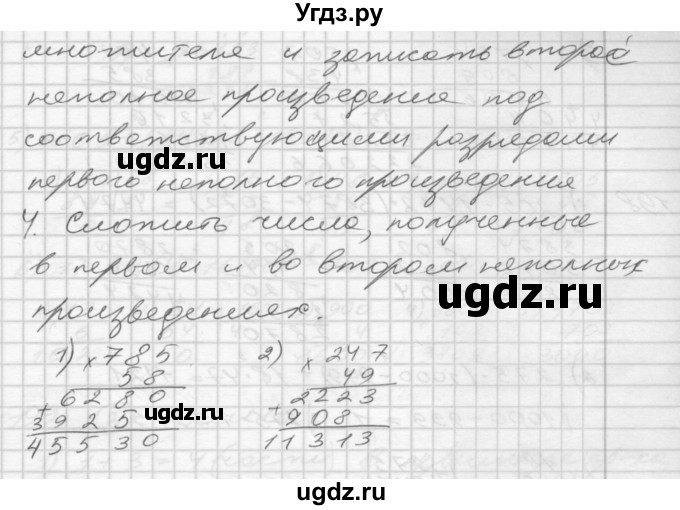 Угдз.ру
множителя и записать второе
неполное произведение под
соответствующими разрядами
ugdz.ru
первого неполного произведения
4. Сложить числа, полученные
в первом и во втором неполных
ugdz.ru
произведениях.
1) × 785 2) × 247
58 49
6280 2223
+ +
3925 908
45530 11313
ugdz.ru
ugdz.ru
ugdz.ru